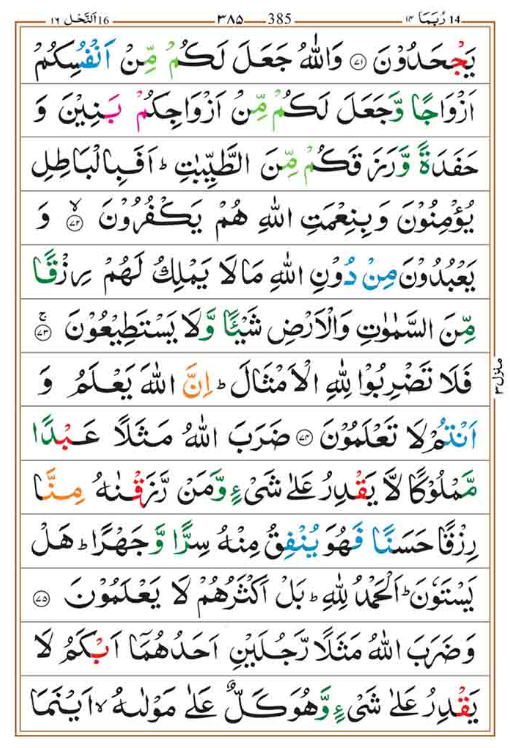 14 رُبَمَا ١٤ — 385 — ٣٨٥ — 16 اَلنَّحْل ١٦
يَجْحَدُوْنَ ﴿۷۱﴾ وَاللّٰهُ جَعَلَ لَكُمْ مِّنْ اَنْفُسِكُمْ
اَزْوَاجًا وَّجَعَلَ لَكُمْ مِّنْ اَزْوَاجِكُمْ بَنِيْنَ وَ
حَفَدَةً وَّرَزَقَكُمْ مِّنَ الطَّيِّبٰتِ ؕ اَفَبِالْبَاطِلِ
يُؤْمِنُوْنَ وَبِنِعْمَتِ اللّٰهِ هُمْ يَكْفُرُوْنَ ۙ﴿۷۲﴾ وَ
يَعْبُدُوْنَ مِنْ دُوْنِ اللّٰهِ مَا لَا يَمْلِكُ لَهُمْ رِزْقًا
مِّنَ السَّمٰوٰتِ وَالْاَرْضِ شَيْئًا وَّلَا يَسْتَطِيْعُوْنَ ۚ﴿۷۳﴾
فَلَا تَضْرِبُوْا لِلّٰهِ الْاَمْثَالَ ؕ اِنَّ اللّٰهَ يَعْلَمُ وَ
اَنْتُمْ لَا تَعْلَمُوْنَ ﴿۷۴﴾ ضَرَبَ اللّٰهُ مَثَلًا عَبْدًا
مَّمْلُوْكًا لَّا يَقْدِرُ عَلٰى شَىْءٍ وَّمَنْ رَّزَقْنٰهُ مِنَّا
رِزْقًا حَسَنًا فَهُوَ يُنْفِقُ مِنْهُ سِرًّا وَّجَهْرًا ؕ هَلْ
يَسْتَوٗنَ ؕ اَلْحَمْدُ لِلّٰهِ ؕ بَلْ اَكْثَرُهُمْ لَا يَعْلَمُوْنَ ﴿۷۵﴾
وَضَرَبَ اللّٰهُ مَثَلًا رَّجُلَيْنِ اَحَدُهُمَاۤ اَبْكَمُ لَا
يَقْدِرُ عَلٰى شَىْءٍ وَّهُوَ كَلٌّ عَلٰى مَوْلٰىهُ ۙ اَيْنَمَا
منزل ٣